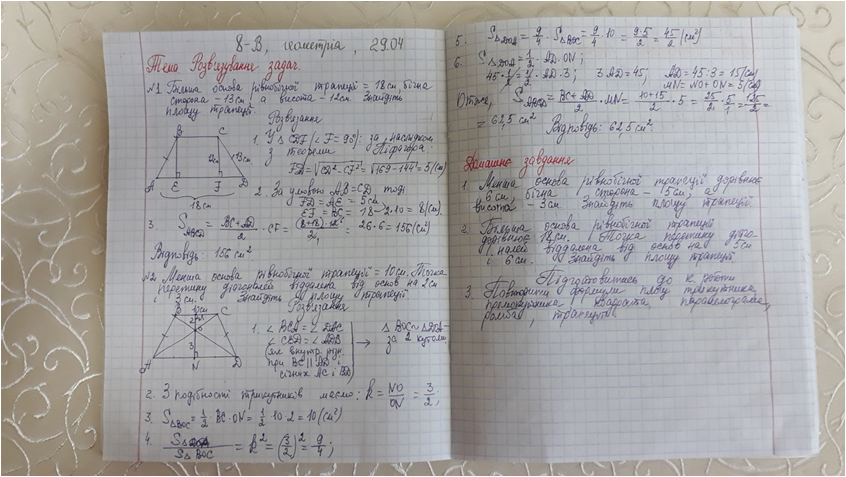 8-В, геометрія, 29.04
Тема Розвязування задач.
№1 Більша основа рівнобічної трапеції = 18см, бічна
сторона - 13см, а висота - 12см. Знайдіть
площу трапеції.
Розвязання
B C
12см 13см
A E F D
18см
1. У △ CDF (∠F = 90°): за наслідком
з теореми Піфагора
FD = √CD² - CF² = √169 - 144 = 5 (см)
2. За умовою AB = CD тоді
FD = AE = 5см
EF = BC = 18 - 2·10 = 8 (см)
3. S ABCD = BC + AD / 2 · CF = (8+18)·12 / 2 = 26·6 = 156 (см²)
Відповідь: 156 см²
№2 Менша основа рівнобічної трапеції = 10см. Точка
перетину діагоналей віддалена від основ на 2см
і 3см. Знайдіть площу трапеції.
Розвязання
B 10см C
3
A N D
1. ∠ BCA = ∠ DAC
∠ CBD = ∠ ADB
(як внутр. різн.
при BC || AD і
січних AC і BD)
→ △ BOC ~ △ DOA -
за 2 кутами
2. З подібності трикутників маємо: k = NO / ON = 3/2;
3. S△BOC = 1/2 BC·ON = 1/2·10·2 = 10 (см²)
4. S△DOA / S△BOC = k² = (3/2)² = 9/4;
5. S△DOA = 9/4 · S△BOC = 9/4 · 10 = 9·5/2 = 45/2 (см²)
6. S△DOA = 1/2 · AD · ON;
45·1/2 = 1/2 · AD · 3; 3AD = 45; AD = 45:3 = 15 (см)
MN = NO + ON = 5 (см)
Отже, S ABCD = BC + AD / 2 · MN = 10+15 / 2 · 5 = 25/2 · 5/1 = 125/2 =
= 62,5 см²
Відповідь: 62,5 см²
Домашнє завдання
1. Менша основа рівнобічної трапеції дорівнює
6см, бічна сторона - 5см, а
висота - 3см. Знайдіть площу трапеції.
2. Більша основа рівнобічної трапеції
дорівнює 18см. Точка перетину діаго-
налей віддалена від основ на 5см
і 6см. Знайдіть площу трапеції
Підготовитись до к. роботи
3. Повторити формули площ трикутника,
прямокутника, квадрата, паралелограма,
ромба, трапеції.